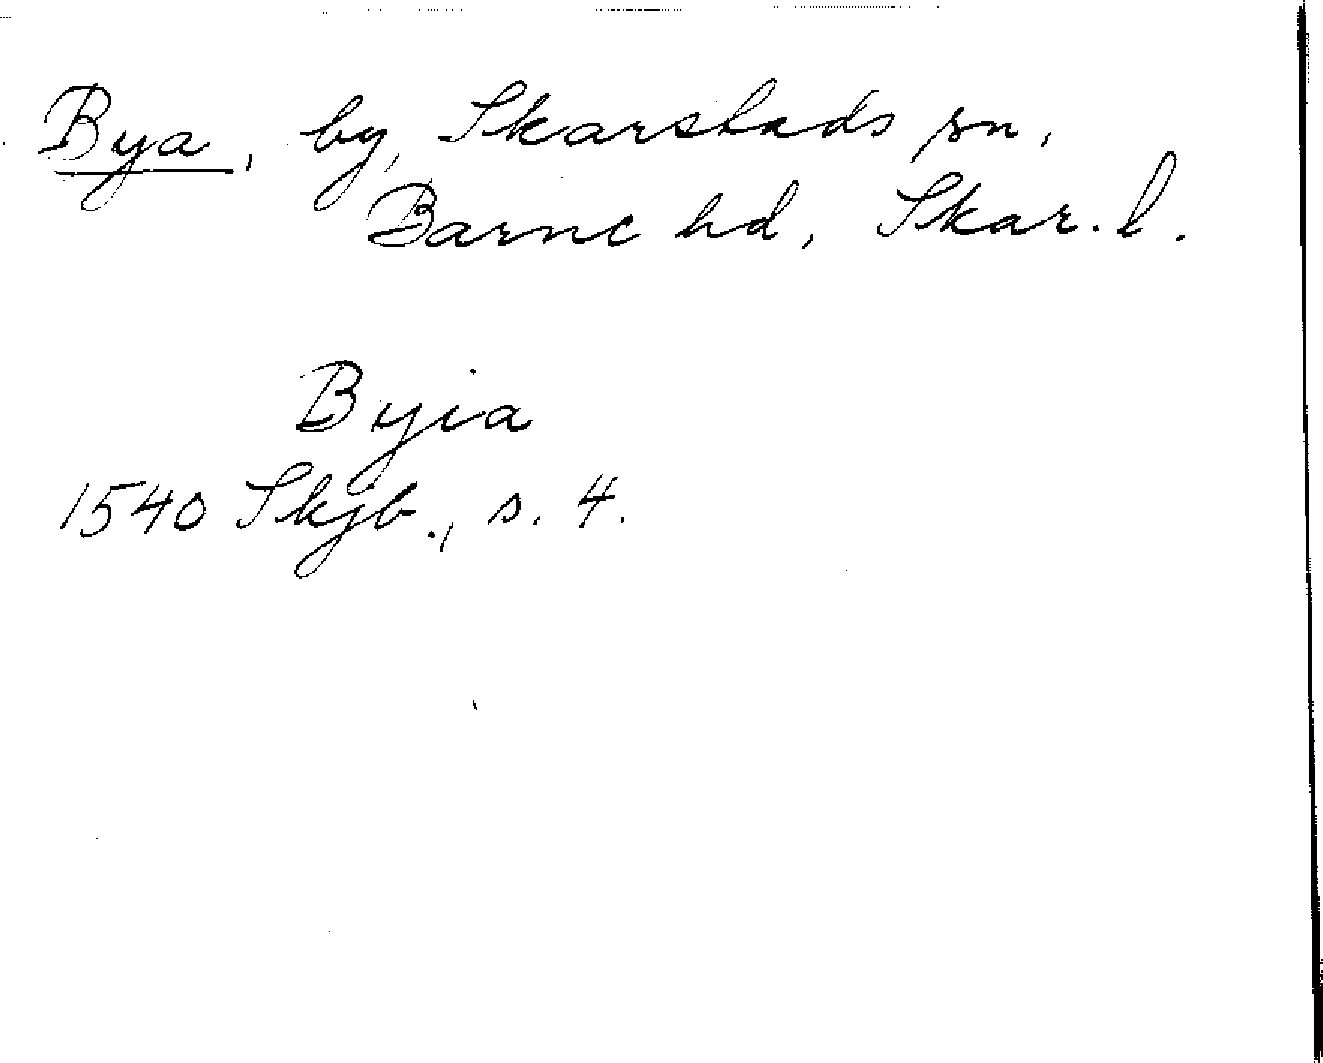 Bya, by, Skarstads sn,
Barne hd, Skar. l.
Byia
1540 Skjb., s. 4.